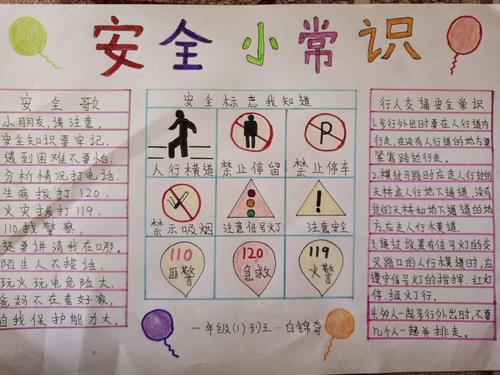 安全小常识
安全歌
小朋友,请注意,
安全知识要牢记。
遇到困难不要怕,
分析情况打电话。
生病拨打120,
火灾拨打119,
110找警察,
还要讲清我在哪。
陌生人不搭话,
玩火玩电危险大。
爸妈不在看好家,
自我保护能力大。
安全标志我知道
人行横道
禁止停留
禁止停车
P
禁示吸烟
注意信号灯
注意安全
!
110
匪警
120
急救
119
火警
一年级(1)班王一白锦奇
行人交通安全常识
1.步行外出时要在人行道内
行走,在没有人行道的地方要
紧靠路边行走。
2.横过马路时应走人行过街
天桥或人行地下通道,没有
过街天桥和地下通道的地
方应走人行横道。
3.通过设置有信号灯的交
叉路口的人行横道时,应
遵守信号灯的指挥,红灯
停,绿灯行。
4.多人一起步行外出时,不要
几个人一起并排走。